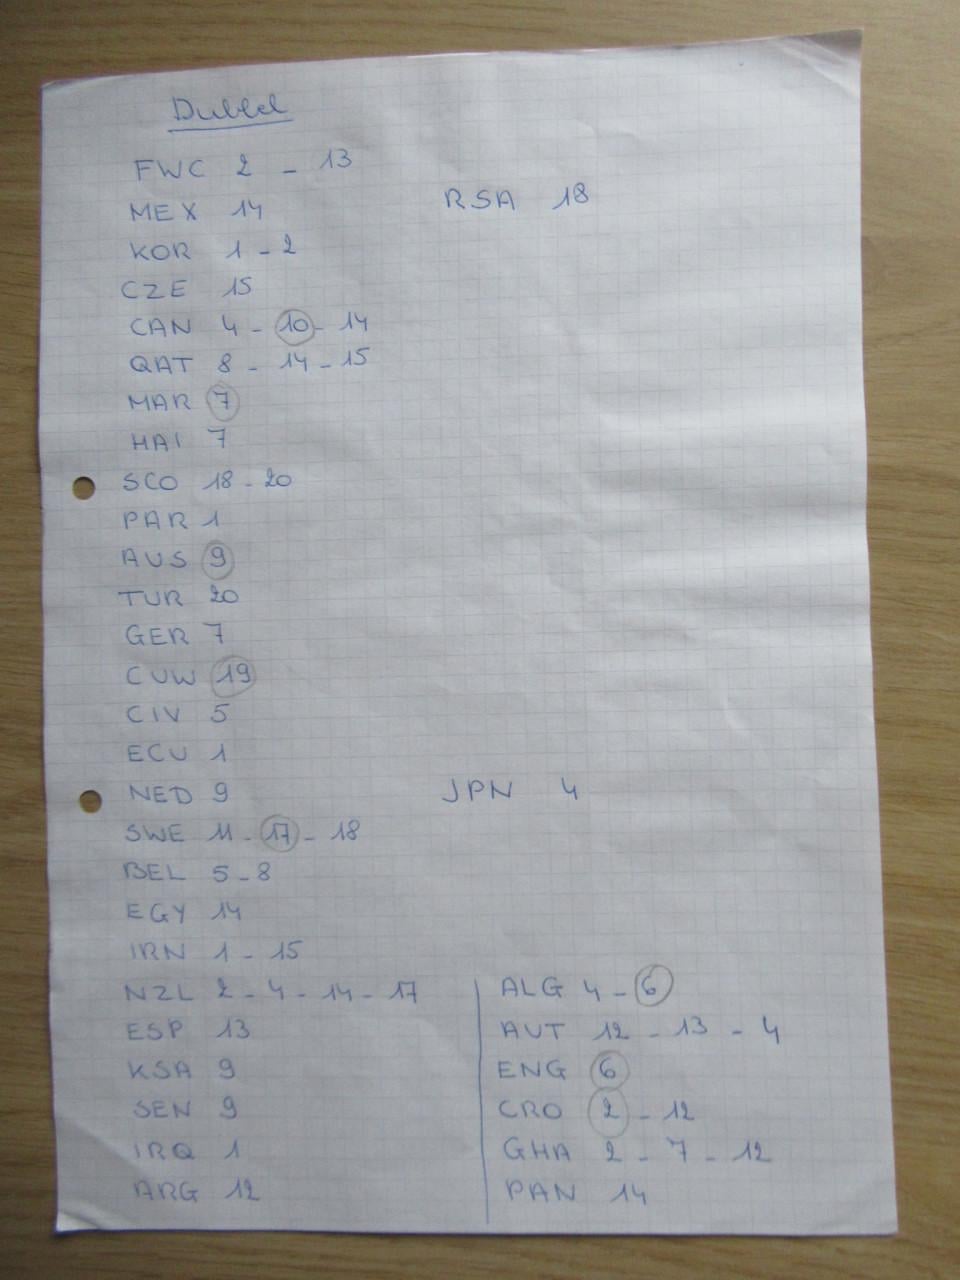 Dubbel
FWC 2 - 13
MEX 14
RSA 18
KOR 1 - 2
CZE 15
CAN 4 - 10 - 14
QAT 8 - 14 - 15
MAR 7
HAI 7
SCO 18 - 20
PAR 1
AUS 9
TUR 20
GER 7
CUW 19
CIV 5
ECU 1
NED 9
JPN 4
SWE 11 - 17 - 18
BEL 5 - 8
EGY 14
IRN 1 - 15
NZL 2 - 4 - 14 - 17
ESP 13
KSA 9
SEN 9
IRQ 1
ARG 12
ALG 4 - 6
AUT 12 - 13 - 4
ENG 6
CRO 2 - 12
GHA 2 - 7 - 12
PAN 14